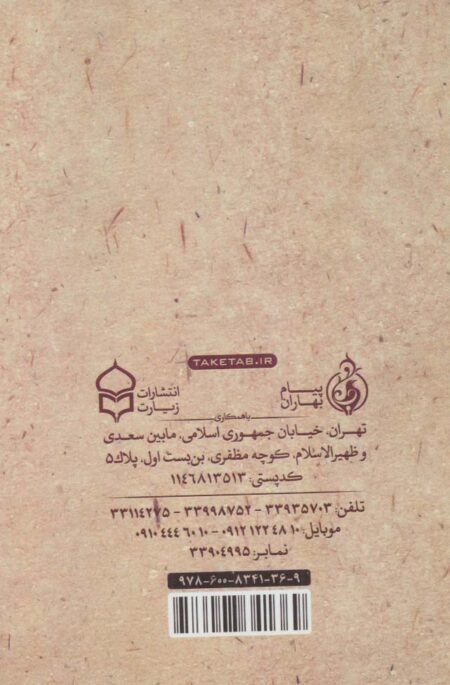 TAKETAB.IR
پیام بهاران
انتشارات زیارت
با همکاری
تهران، خیابان جمهوری اسلامی، مابین سعدی
و ظهیرالاسلام، کوچه مظفری، بن‌بست اول، پلاک۵
کدپستی: ۱۱۴۶۸۱۳۵۱۳
تلفن: ۳۳۹۳۵۷۰۳ - ۳۳۹۹۸۷۵۲ - ۳۳۱۱۴۲۷۵
موبایل: ۰۹۱۲۱۲۲۴۸۱۰ - ۰۹۱۰۴۴۴۶۰۱۰
نمابر: ۳۳۹۰۴۹۹۵
۹۷۸-۶۰۰-۸۳۴۱-۳۶-۹